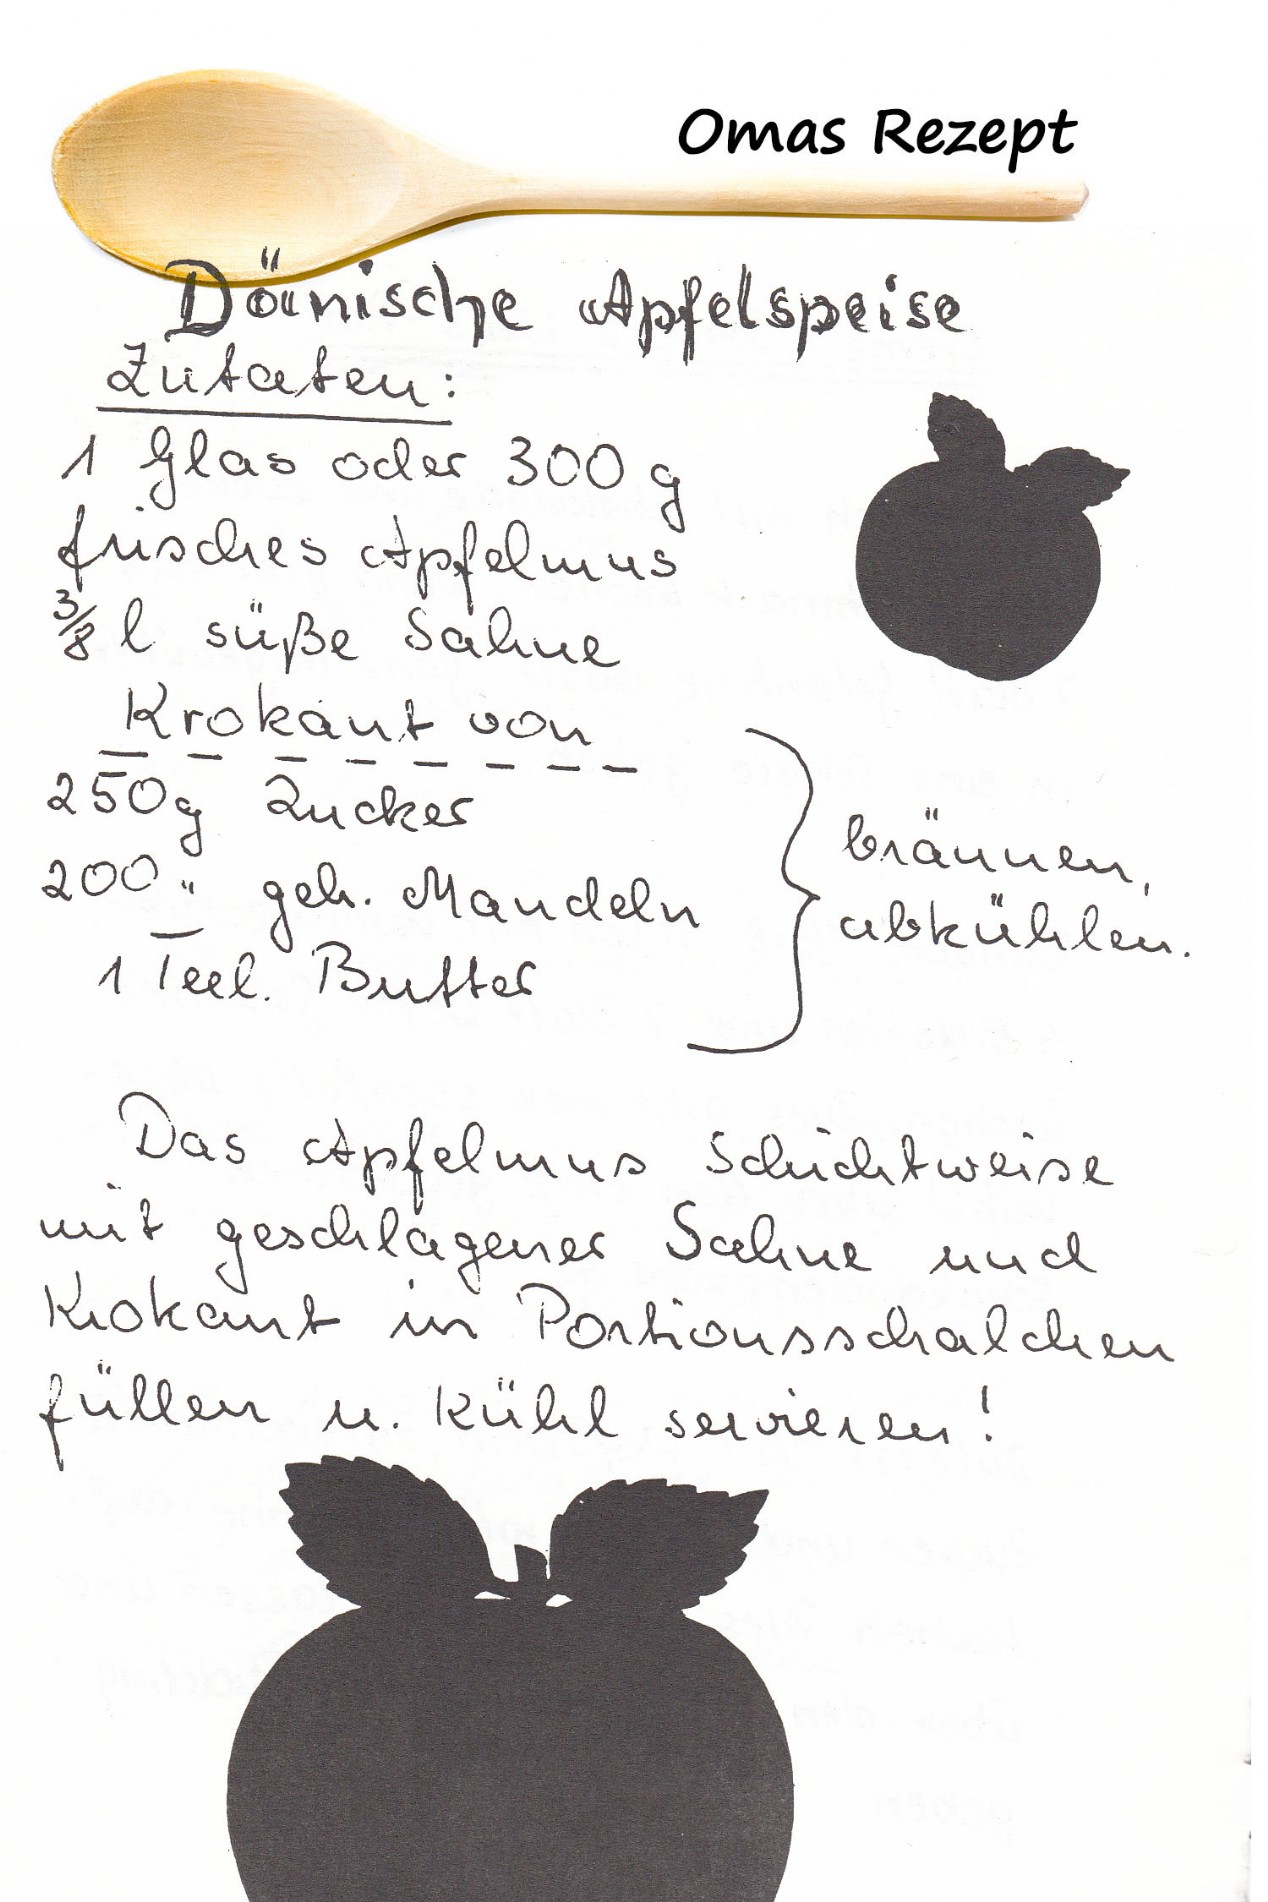 Omas Rezept
Dänische Apfelspeise
Zutaten:
1 Glas oder 300 g
frisches Apfelmus
3/8 l süße Sahne
Krokant von
250g Zucker
200 " geh. Mandeln
1 Teel. Butter
bräunen,
abkühlen.
Das Apfelmus schichtweise
mit geschlagener Sahne und
Krokant in Portionsschalchen
füllen u. kühl servieren!